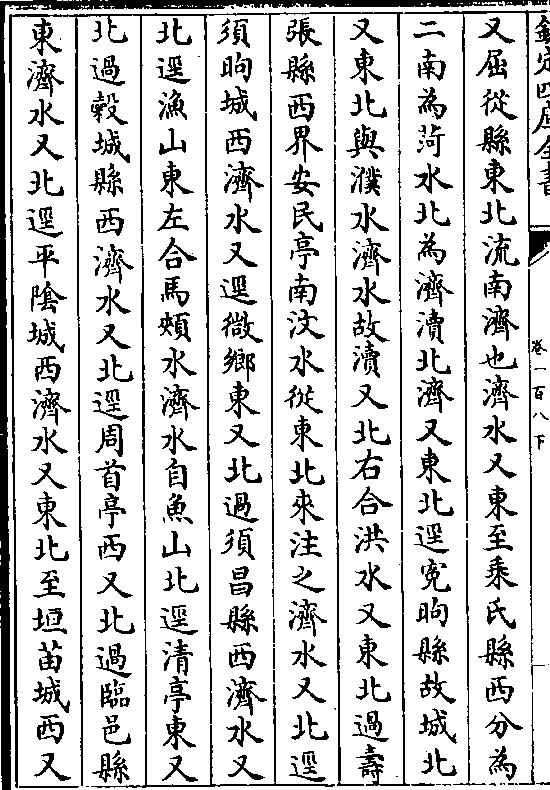 欽定四庫全書
卷一百八下
又屈從縣東北流南濟也濟水又東至乘氏縣西分為
二南為菏水北為濟瀆北濟又東北逕寃朐縣故城北
又東北與濮水濟水故瀆又北右合洪水又東北過壽
張縣西界安民亭南汶水從東北來注之濟水又北逕
須朐城西濟水又逕微鄉東又北過須昌縣西濟水又
北逕漁山東左合馬頰水濟水自魚山北逕清亭東又
北過穀城縣西濟水又北逕周首亭西又北過臨邑縣
東濟水又北逕平陰城西濟水又東北至垣苗城西又